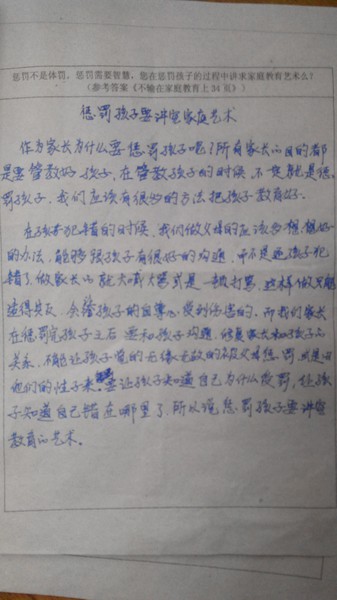 惩罚不是体罚，惩罚需要智慧，您在惩罚孩子的过程中讲求家庭教育艺术么？
（参考答案《不输在家庭教育上 34 页》）
惩罚孩子要讲究家庭艺术
作为家长为什么要惩罚孩子呢？所有家长的目的都
是要管教好孩子，在管教孩子的时候，不是就是惩
罚孩子，我们应该有很好的方法把孩子教育好。
在孩子犯错的时候，我们做父母的应该多想想好
的办法，能够跟孩子有很好的沟通，而不是孩子犯
错了做家长的就大喊大骂或是一顿打骂，这样做只能
适得其反，会给孩子的自尊心受到伤害的，所以我们家长
在惩罚完孩子之后要和孩子沟通，修复家长和孩子的
关系，不能让孩子觉的无缘无故的被父母惩罚，或是由
他们的性子来，要让孩子知道自己为什么受罚，让孩
子知道自己错在哪里了，所以说惩罚孩子要讲究
教育的艺术。